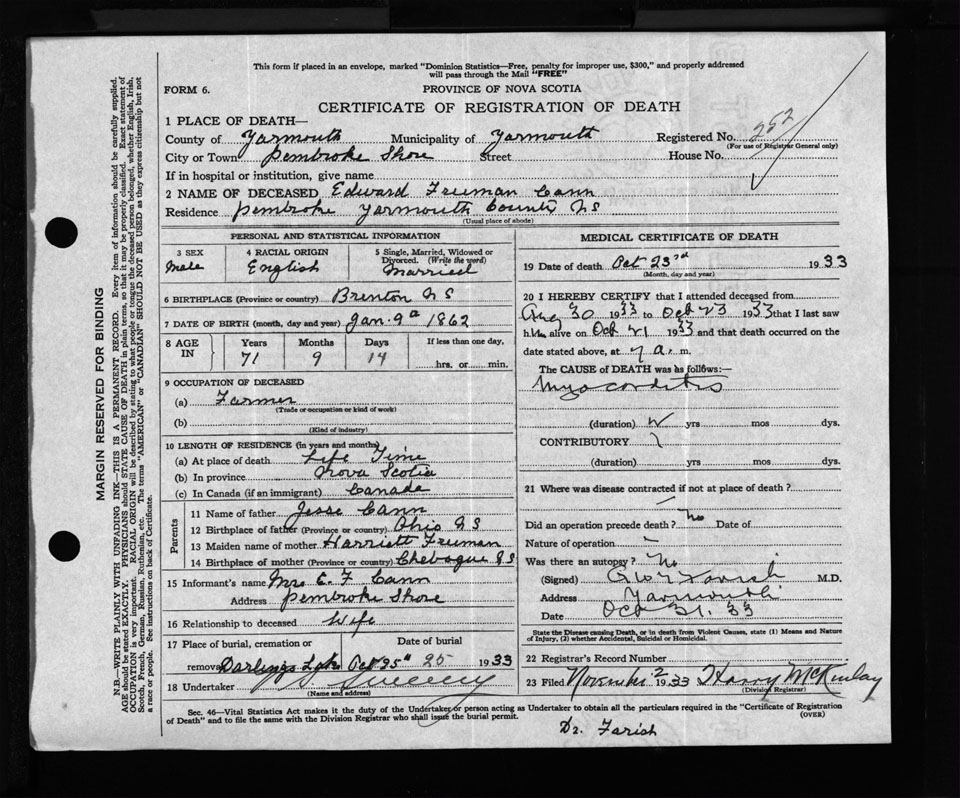 This form if placed in an envelope, marked "Dominion Statistics—Free, penalty for improper use, $300," and properly addressed
will pass through the Mail "FREE"
FORM 6.
PROVINCE OF NOVA SCOTIA
CERTIFICATE OF REGISTRATION OF DEATH
1 PLACE OF DEATH—
County of Yarmouth Municipality of Yarmouth Registered No. 252
(For use of Registrar General only)
City or Town Pembroke Shore Street House No.
If in hospital or institution, give name
2 NAME OF DECEASED Edward Freeman Cann
Residence Pembroke Yarmouth County NS
(Usual place of abode)
PERSONAL AND STATISTICAL INFORMATION
3 SEX Male
4 RACIAL ORIGIN English
5 Single, Married, Widowed or Divorced. (Write the word) Married
6 BIRTHPLACE (Province or country) Brenton NS
7 DATE OF BIRTH (month, day and year) Jan. 9th 1862
8 AGE IN Years Months Days If less than one day,
71 9 14 hrs. or min.
9 OCCUPATION OF DECEASED
(a) Farmer
(Trade or occupation or kind of work)
(b)
(Kind of industry)
10 LENGTH OF RESIDENCE (in years and months)
(a) At place of death Life Time
(b) In province Nova Scotia
(c) In Canada (if an immigrant) Canada
Parents
11 Name of father Jesse Cann
12 Birthplace of father (Province or country) Ohio NS
13 Maiden name of mother Harriett Freeman
14 Birthplace of mother (Province or country) Chebogue NS
15 Informant's name Mrs E. F Cann
Address Pembroke Shore
16 Relationship to deceased Wife
17 Place of burial, cremation or removal Darlings Lake
Date of burial Oct 25th 25 1933
18 Undertaker Sweeny
(Name and address)
MEDICAL CERTIFICATE OF DEATH
19 Date of death Oct 23rd 1933
(Month, day and year)
20 I HEREBY CERTIFY that I attended deceased from
Aug 30 1933 to Oct 23 1933 that I last saw
him alive on Oct 21 1933 and that death occurred on
date stated above, at 7 a. m.
The CAUSE of DEATH was as follows:—
Myocarditis
(duration) yrs mos dys.
CONTRIBUTORY
(duration) yrs mos dys.
21 Where was disease contracted if not at place of death?
Did an operation precede death? No Date of
Nature of operation —
Was there an autopsy? No
(Signed) Geo W Farish M.D.
Address Yarmouth
Date Oct 31. 33
State the Disease causing Death, or in death from Violent Causes, state (1) Means and Nature
of Injury, (2) whether Accidental, Suicidal or Homicidal.
22 Registrar's Record Number
23 Filed November 2 1933 Harry McKinlay
(Division Registrar)
Sec. 46—Vital Statistics Act makes it the duty of the Undertaker or person acting as Undertaker to obtain all the particulars required in the "Certificate of Registration
of Death" and to file the same with the Division Registrar who shall issue the burial permit.
(OVER)
Dr. Farish
MARGIN RESERVED FOR BINDING
N.B.—WRITE PLAINLY WITH UNFADING INK—THIS IS A PERMANENT RECORD. Every item of information should be carefully supplied.
AGE should be stated EXACTLY. PHYSICIANS should STATE CAUSE OF DEATH in plain terms, so that it may be properly classified. Exact statement of
OCCUPATION is very important. RACIAL ORIGIN will be described by stating to what people or tongue the deceased person belonged, whether English, Irish,
Scotch, French, German, Russian, Ruthenian, etc. The terms "AMERICAN" or "CANADIAN" SHOULD NOT BE USED as they express citizenship but not
a race or people. See instructions on back of Certificate.